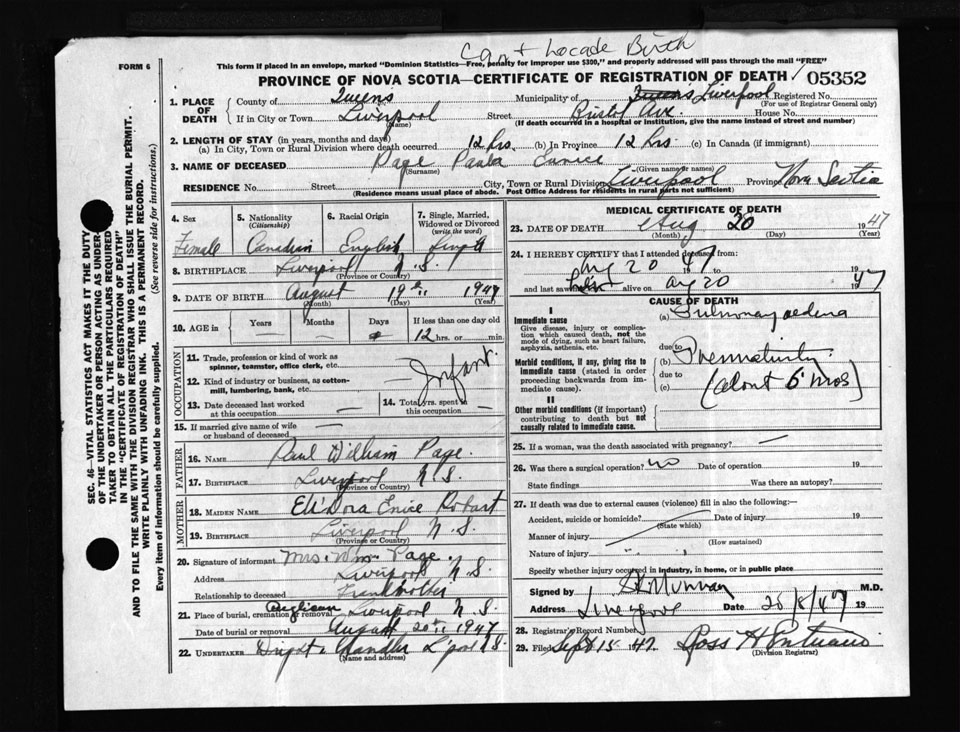 Can't Locade Birth
FORM 6
This form if placed in an envelope, marked "Dominion Statistics—Free, penalty for improper use $300," and properly addressed will pass through the mail "FREE"
PROVINCE OF NOVA SCOTIA—CERTIFICATE OF REGISTRATION OF DEATH 05352
1. PLACE OF DEATH
County of Queens Municipality of Queens Liverpool Registered No.
(For use of Registrar General only)
If in City or Town Liverpool Street Bristol Ave House No.
(Name) (If death occurred in a hospital or institution, give the name instead of street and number)
2. LENGTH OF STAY (in years, months and days)
(a) In City, Town or Rural Division where death occurred 12 hrs. (b) In Province 12 hrs. (c) In Canada (if immigrant)
3. NAME OF DECEASED Page Paula Eunice
(Surname) (Given name or names)
RESIDENCE No. Street City, Town or Rural Division Liverpool Province Nova Scotia
(Residence means usual place of abode. Post Office Address for residents in rural parts not sufficient)
4. Sex Female
5. Nationality (Citizenship) Canadian
6. Racial Origin English
7. Single, Married, Widowed or Divorced (write the word) Single
8. BIRTHPLACE Liverpool N.S.
(Province or Country)
9. DATE OF BIRTH August 19th 1947
(Month) (Day) (Year)
10. AGE in Years Months Days If less than one day
12 hrs. or min.
OCCUPATION
11. Trade, profession or kind of work as spinner, teamster, office clerk, etc.
Infant
12. Kind of industry or business, as cotton-mill, lumbering, bank, etc.
13. Date deceased last worked at this occupation
14. Total yrs. spent in this occupation
15. If married give name of wife or husband of deceased
FATHER
16. NAME Paul William Page
17. BIRTHPLACE Liverpool N.S.
(Province or Country)
MOTHER
18. MAIDEN NAME Eli'Dora Enice Robart
19. BIRTHPLACE Liverpool N.S.
(Province or Country)
20. Signature of informant Mrs. Wm Page
Address Liverpool N.S.
Relationship to deceased Grandmother
21. Place of burial, cremation or removal Anglican Liverpool N.S.
Date of burial or removal August 20th 1947
22. UNDERTAKER Chandler L'pool N.S.
(Name and address)
MEDICAL CERTIFICATE OF DEATH
23. DATE OF DEATH Aug 20 1947
(Month) (Day) (Year)
24. I HEREBY CERTIFY that I attended deceased from:
Aug 20 1947 19
and last saw alive on Aug 20 1947
CAUSE OF DEATH
I
Immediate cause (a) Pulmonary oedema
Give disease, injury or complication which caused death, not the mode of dying, such as heart failure, asphyxia, asthenia, etc.
due to
Morbid conditions, if any, giving rise to immediate cause (stated in order proceeding backwards from immediate cause).
(b) Prematurity
due to
(c) (about 6 mos)
II
Other morbid conditions (if important) contributing to death but not causally related to immediate cause.
25. If a woman, was the death associated with pregnancy?
26. Was there a surgical operation? no Date of operation 19
State findings Was there an autopsy?
27. If death was due to external causes (violence) fill in also the following:—
Accident, suicide or homicide? Date of injury 19
(State which)
Manner of injury
(How sustained)
Nature of injury
Specify whether injury occurred in industry, in home, or in public place
Signed by M.D.
Address Liverpool Date 20/8/47 19
28. Registrar's Record Number
29. Filed Sept 15 1947 Ross H
(Division Registrar)
SEC. 46—VITAL STATISTICS ACT MAKES IT THE DUTY
OF THE UNDERTAKER OR PERSON ACTING AS UNDERTAKER TO OBTAIN ALL THE PARTICULARS REQUIRED
IN THE "CERTIFICATE OF REGISTRATION OF DEATH"
AND TO FILE THE SAME WITH THE DIVISION REGISTRAR WHO SHALL ISSUE THE BURIAL PERMIT.
WRITE PLAINLY WITH UNFADING INK. THIS IS A PERMANENT RECORD.
Every item of information should be carefully supplied. (See reverse side for instructions.)